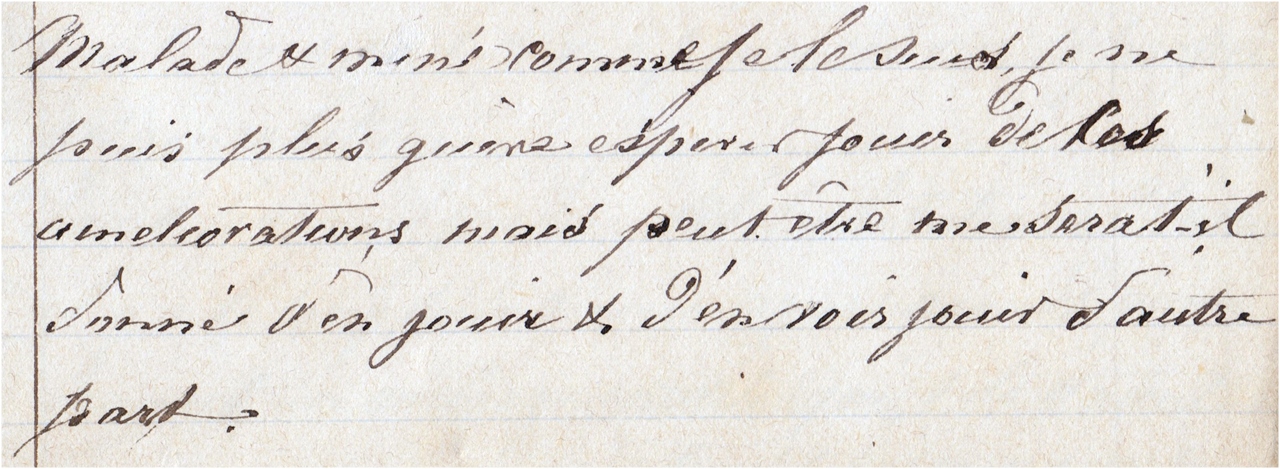 Malade & miné comme je le suis, je ne
puis plus guère espérer jouir de ces
améliorations, mais peut être me serat-il
donné d'en jouir & d'en voir jouir d'autre
part.